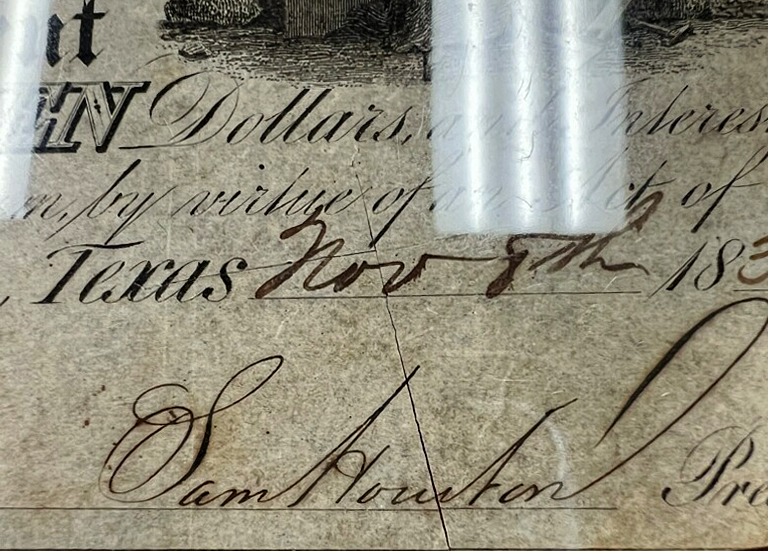 nt
EN Dollars, Interes
n, by virtue of an Act of
, Texas Nov 8th 183
Sam Houston Pre